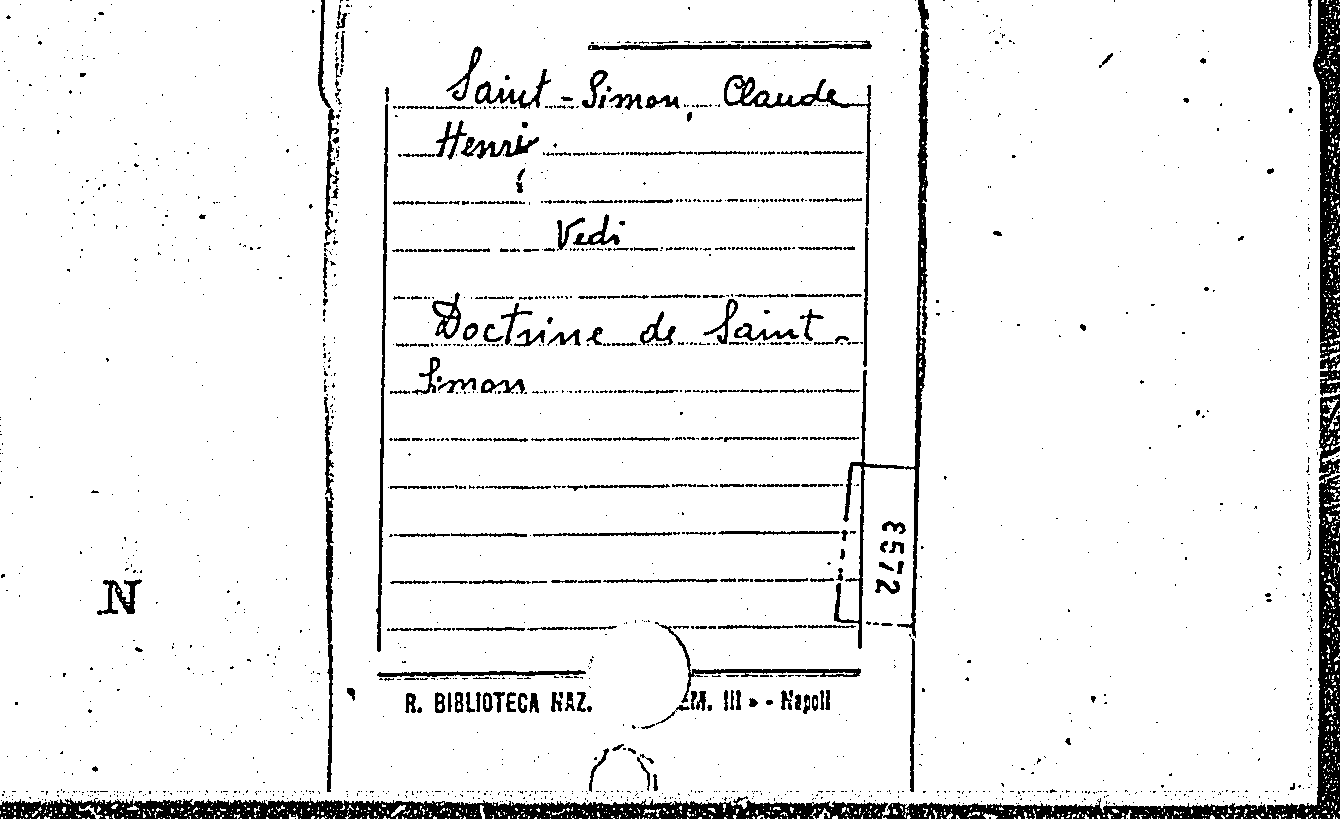 Saint-Simon, Claude
Henri
Vedi
Doctrine de Saint-
Simon
8572
N
R. BIBLIOTECA NAZ. EM. III » - Napoli